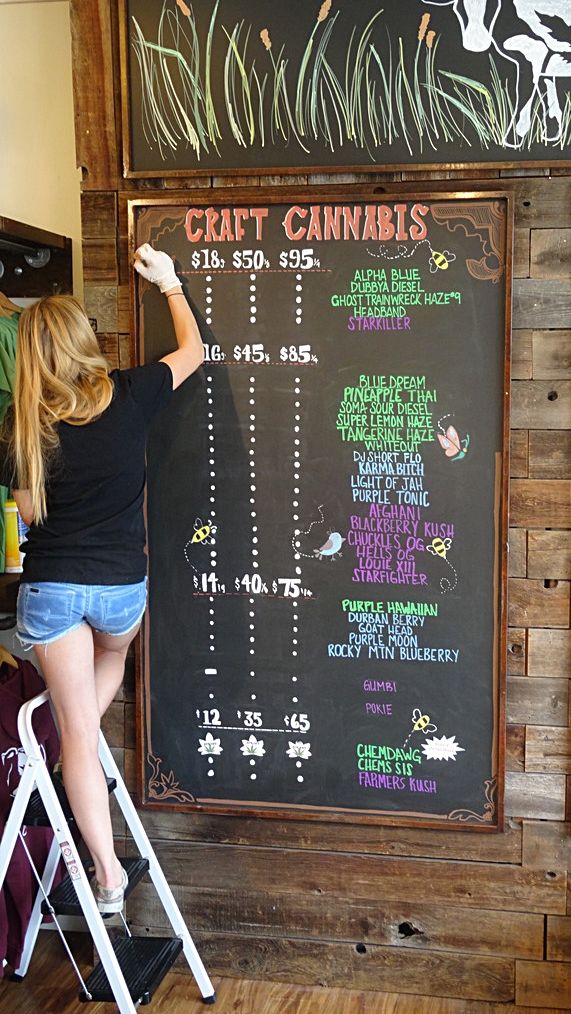 CRAFT CANNABIS
$18 $50 $95
ALPHA BLUE
DUBBYA DIESEL
GHOST TRAINWRECK HAZE #9
HEADBAND
STARKILLER
16 $45 $85
BLUE DREAM
PINEAPPLE THAI
SOMA SOUR DIESEL
SUPER LEMON HAZE
TANGERINE HAZE
WHITEOUT
DJ SHORT FLO
KARMA BITCH
LIGHT OF JAH
PURPLE TONIC
AFGHANI
BLACKBERRY KUSH
CHUCKLES OG
HELLS OG
LOUIE XIII
STARFIGHTER
$14 $40 $75
PURPLE HAWAIIAN
DURBAN BERRY
GOAT HEAD
PURPLE MOON
ROCKY MTN BLUEBERRY
GUMBI
POKIE
$12 $35 $65
CHEMDAWG
CHEMS SIS
FARMERS KUSH